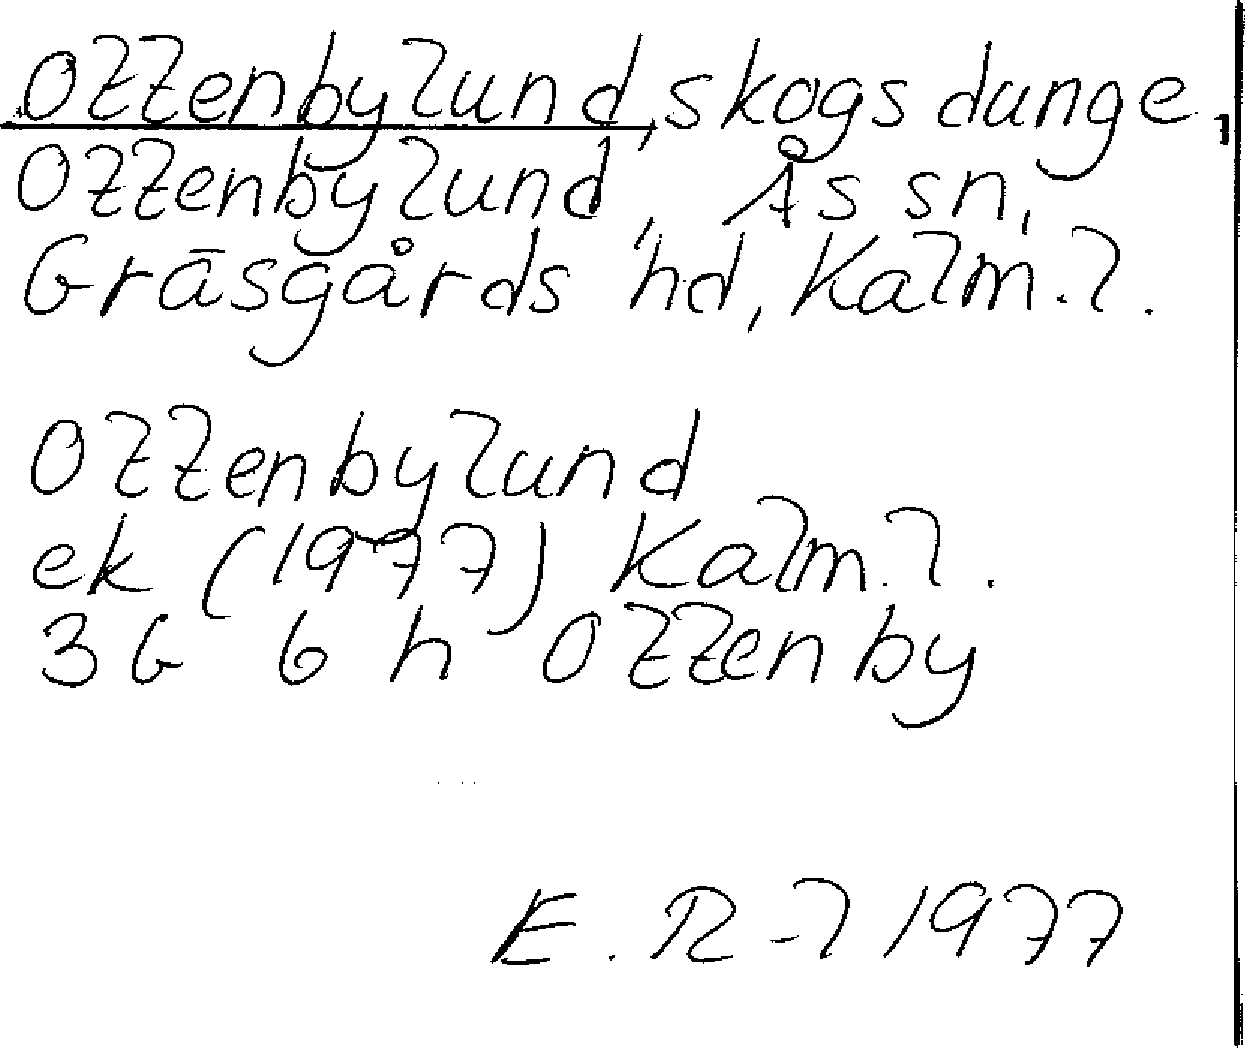 Ottenbylund, skogsdunge,
Ottenbylund, Ås sn,
Gräsgårds hd, Kalm. l.
Ottenbylund
ek (1977) Kalm. l.
3G 6h Ottenby
E. R-l 1977